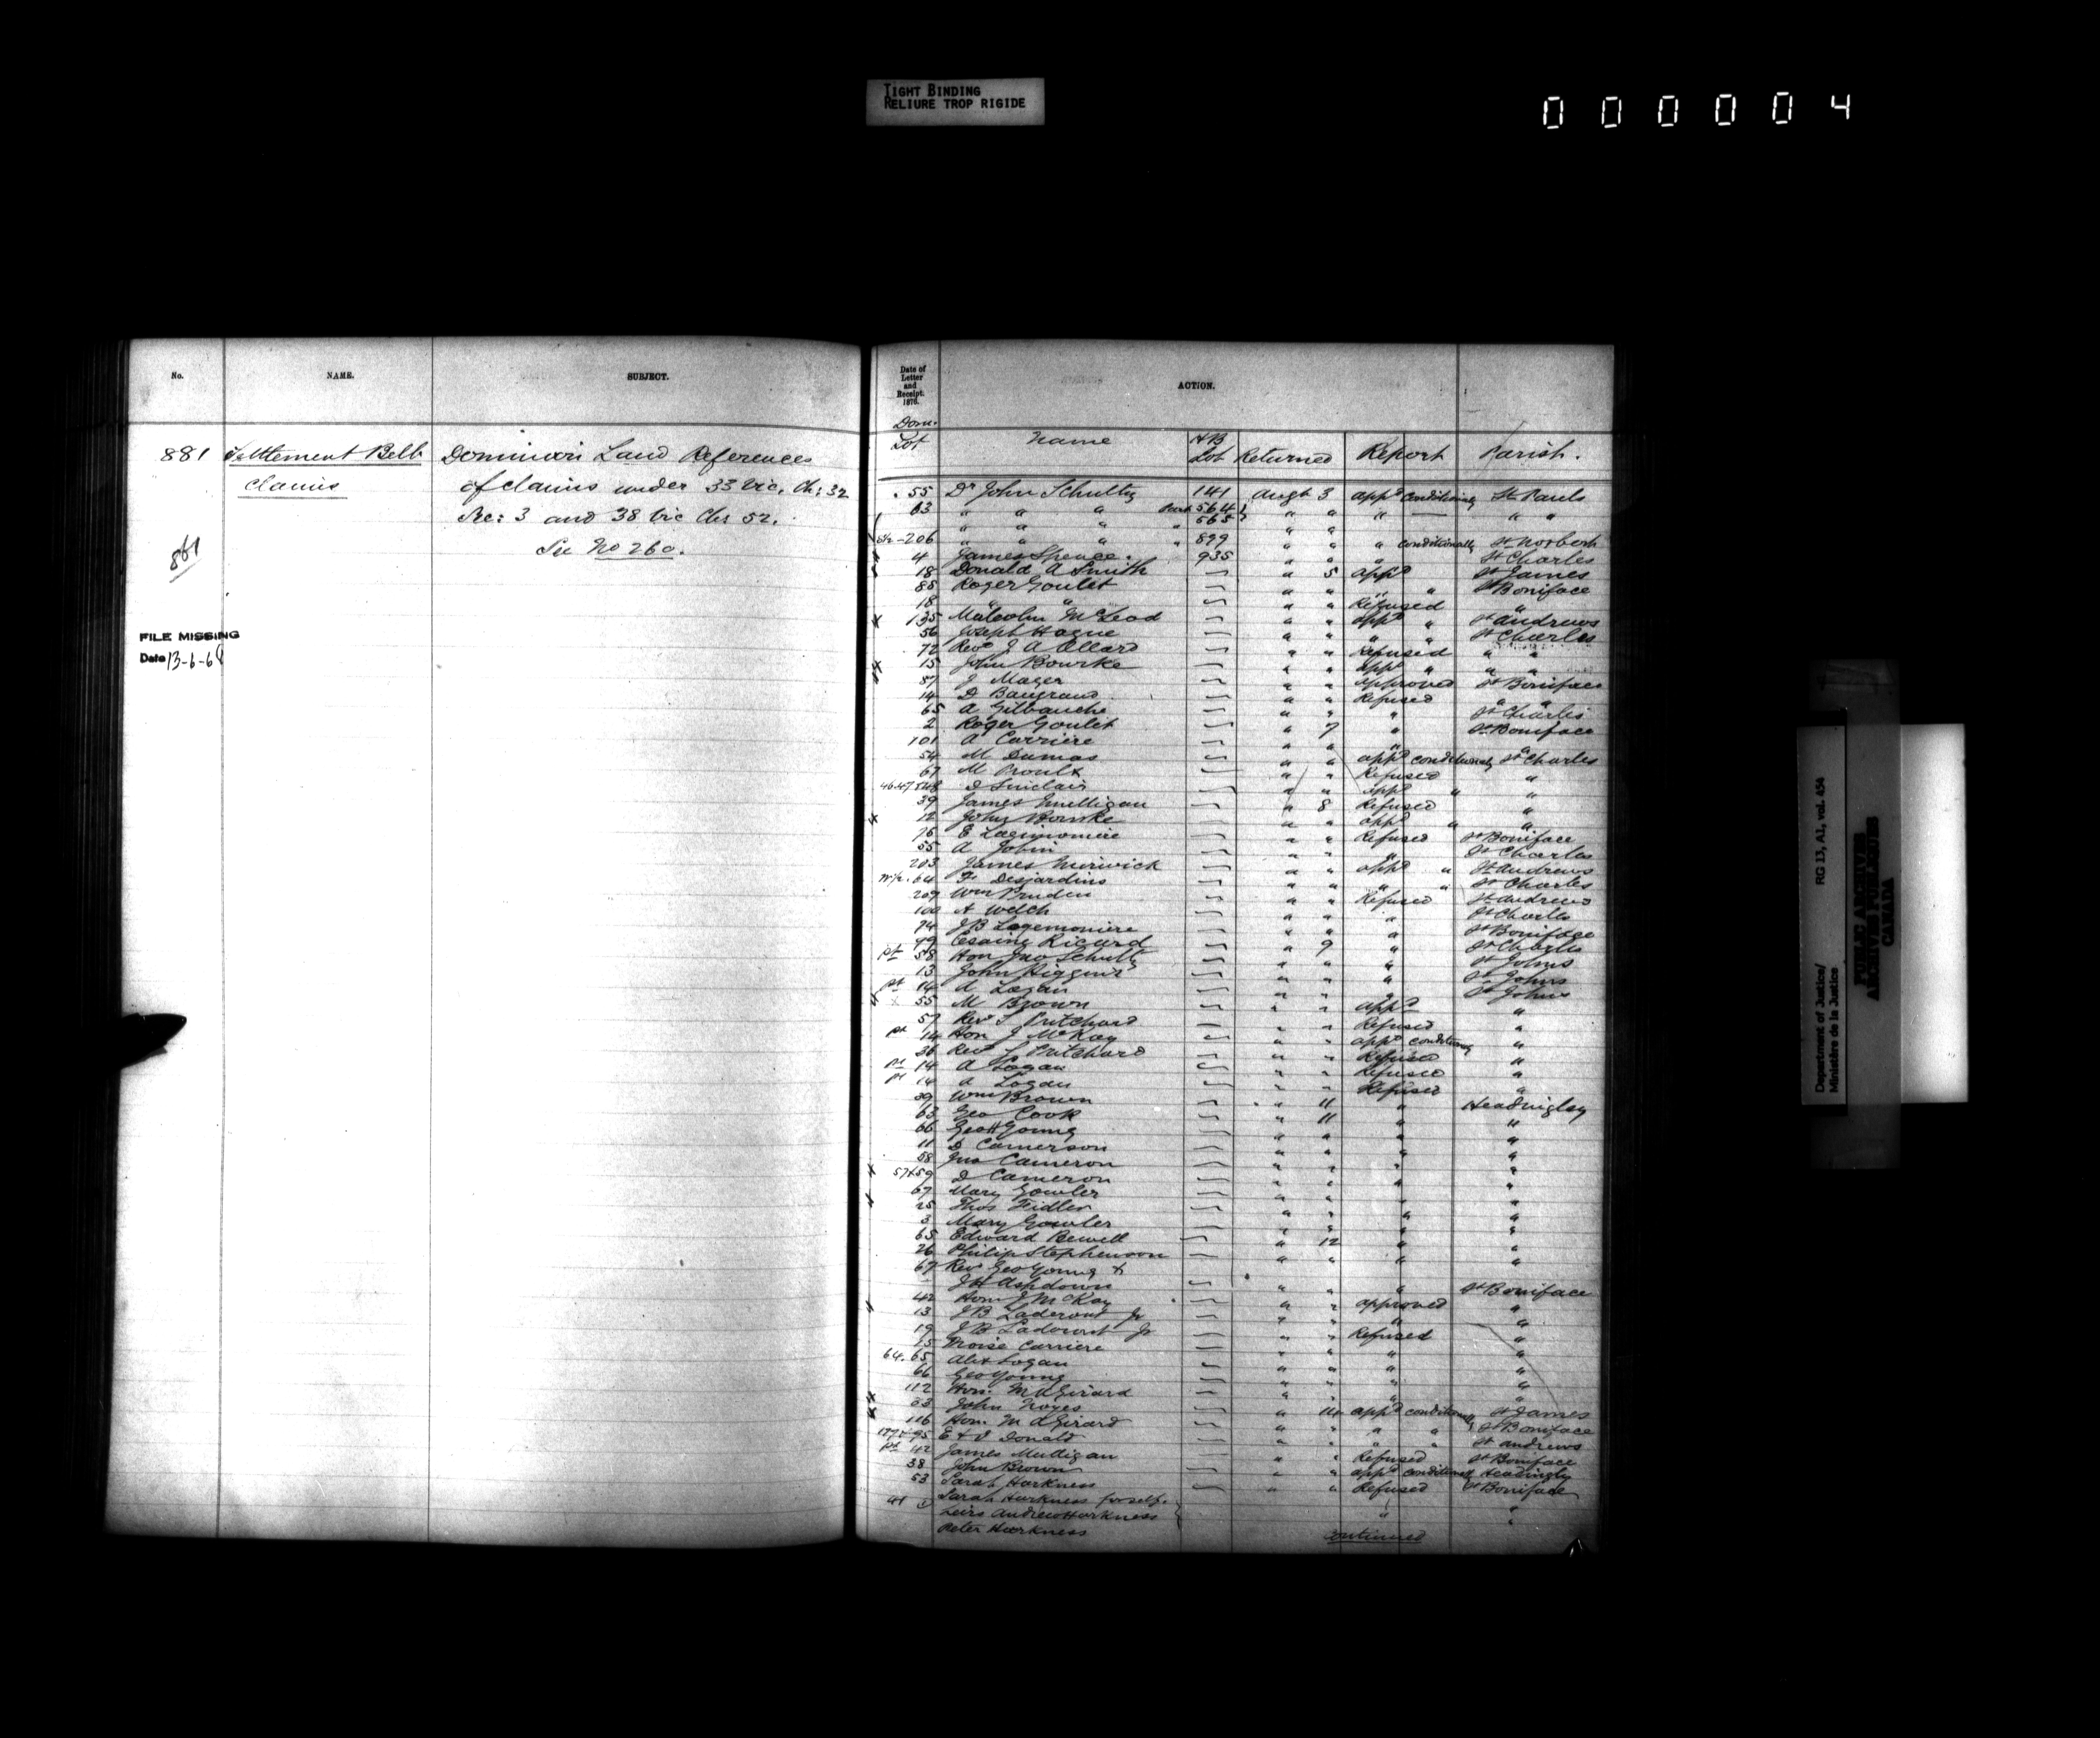 TIGHT BINDING
RELIURE TROP RIGIDE
000004
No. NAME. SUBJECT.
881 Settlement Belt Dominion Land References
Claims of claims under 33 Vic. Ch: 32
Sec: 3 and 38 Vic Chs 52.
See No 260.
881
FILE MISSING
Date 13-6-68
Date of
Letter
and
Receipt.
1876.
ACTION.
Dom.
Lot Name HB Lot Returned Report Parish.
55 Dr John Schultz 141 Augt 3 appd conditionally St Pauls
63 " " " Part 564 " " " "
" " " " 565 " "
206 " " " " 899 " " " conditionally St Norbert
4 James Spence. 935 " " " St Charles
18 Donald A Smith " 5 appd St James
85 Roger Goulet " " " " St Boniface
18 " " " " Refused "
135 Malcolm McLeod " " appd " St Andrews
56 Joseph Hogue " " " " St Charles
72 Revd J A Allard " " Refused " "
15 John Bourke " " appd " " "
57 J Mager " " approved St Boniface
14 D " " Refused "
65 A " " " St Charles
2 Roger Goulet " 7 " St Boniface
101 A Carriere " " " "
54 M Dumas " " appd conditionally St Charles
67 M Proulx " " Refused "
46.47 & 48 D Sinclair " " appd " "
39 James Mulligan " 8 Refused "
12 John Bourke " " appd " "
76 E Lagimoniere " " Refused St Boniface
55 A Jobin " " " St Charles
203 James " " appd " St Andrews
64 F. Desjardins " " " " St Charles
209 Wm Pruden " " Refused St Andrews
100 A Welch " " " St Charles
74 J B Lagemoniere " " " St Boniface
99 Ricard " 9 " St Charles
pt 58 Hon Jno Schultz " " " St Johns
13 John Higgins " " " St Johns
pt 14 A Logan " " " St Johns
55 M Brown " " appd "
57 Revd S Pritchard " " Refused "
pt 14 Hon J McKay " " appd conditionally "
36 Revd S Pritchard " " Refused "
pt 14 A Logan " " Refused "
pt 14 A Logan " " Refused "
39 Wm Brown " 11 " Headingley
63 Geo Cook " 11 " "
66 Geo H Young " " " "
11 D Camerson " " " "
58 Jno Cameron " " " "
57 & 59 D Cameron " " " "
67 Mary Gowler " "
25 Thos Fidler " " " "
3 Mary Gowler " " " "
65 Edward Bewell " 12 " "
26 Philip Stephenson " " " "
67 Revd Geo Young &
J H Ashdown " " " St Boniface
42 Hon J McKay " " approved "
13 J B Laderout Jr " " " "
19 J B Ladouout Jr " " Refused "
15 Moise Carriere " " " "
64.65 Alex Logan " " " "
66 Geo Young " " " "
112 Hon. M A Girard " " " "
53 John Noyes " 14 appd conditionally St James
116 Hon M A Girard " " " " St Boniface
E & D Donald " " " " St Andrews
pt 42 James Mulligan " " Refused St Boniface
38 John Brown " " appd conditionally Headingly
53 Sarah Harkness " " Refused St Boniface
41 Sarah Harkness for self. " "
Heirs Andrew Harkness
Peter Harkness
continued
Department of Justice/ RG 13, A1, vol. 454
Ministère de la Justice
PUBLIC ARCHIVES
ARCHIVES PUBLIQUES
CANADA